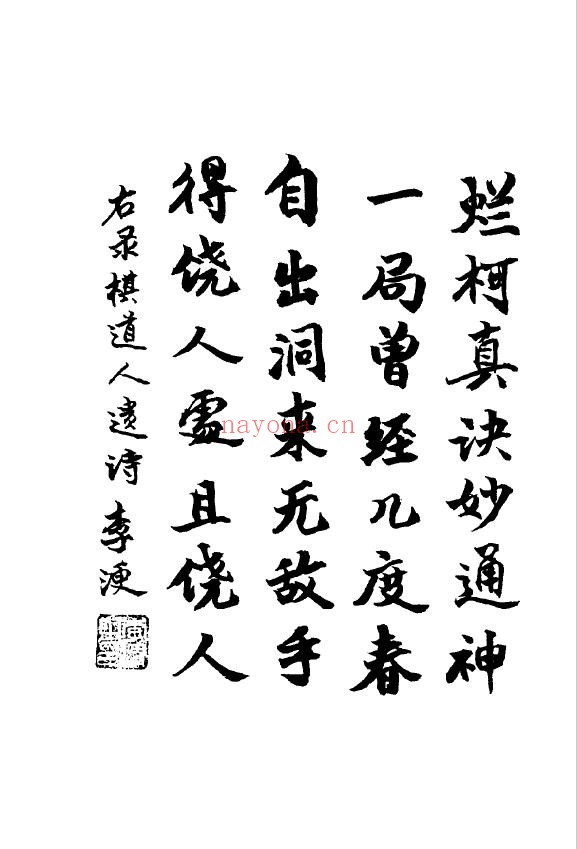 烂柯真诀妙通神
一局曾经几度春
自出洞来无敌手
得饶人处且饶人
右录棋道人遗诗 李浭
nayona.cn